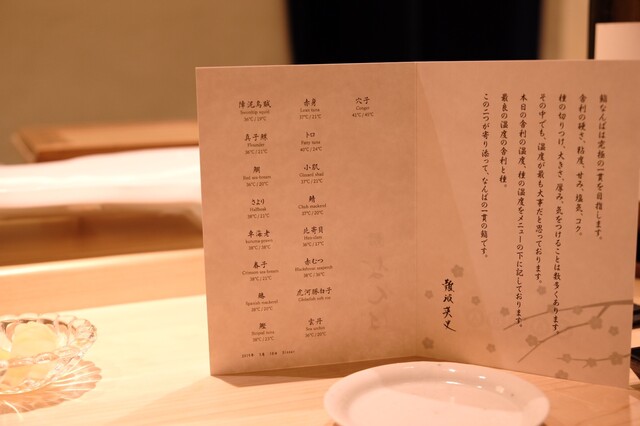 障泥烏賊
Swordtip squid
36℃ / 19℃
真子鰈
Flounder
36℃ / 21℃
鯛
Red sea bream
36℃ / 20℃
さより
Halfbeak
車海老
Kuruma prawn
春子
Crimson sea bream
鰆
Spanish mackerel
鰹
Striped tuna
赤身
Lean tuna
37℃ / 21℃
トロ
Fatty tuna
40℃ / 24℃
小肌
Gizzard shad
鯖
Chub mackerel
37℃ / 20℃
北寄貝
Hen clam
36℃ / 17℃
赤むつ
Blackthroat seaperch
虎河豚白子
雲丹
Sea urchin
36℃ / 20℃
穴子
Conger
42℃ / 40℃
鮨なんばは究極の一貫を目指します。
舎利の硬さ、粘度、甘み、塩気、コク。
種の切りつけ、大きさ、厚み、気をつけることは数多くあります。
その中でも、温度が最も大事だと思っております。
本日の舎利の温度、種の温度をメニューの下に記しております。
最良の温度の舎利と種。
この二つが寄り添って、なんばの一貫の鮨です。